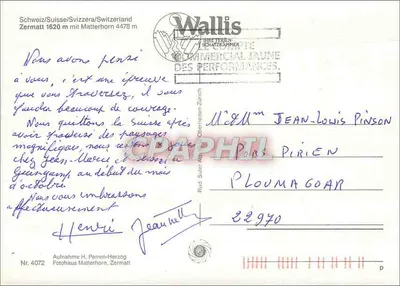 Schweiz/Suisse/Svizzera/Switzerland
Zermatt 1620 m mit Matterhorn 4478 m
Wallis
LE COMPTE
COMMERCIAL JAUNE
DES PERFORMANCES.
Nous avons pensé
à vous, c'est une épreuve
que vous traversez, il vous
faudra beaucoup de courage.
Nous quittons la Suisse après
avoir traversé des paysages
magnifiques, nous
chez
Guingamp au début du mois
d'octobre.
Nous vous embrassons
affectueusement
Henri Jeannette
M & Mme JEAN-LOUIS PINSON
PORS PIRIEN
PLOUMAGOAR
22970
PAPHTL
Aufnahme H. Perren-Herzog
Nr. 4072 Fotohaus Matterhorn, Zermatt